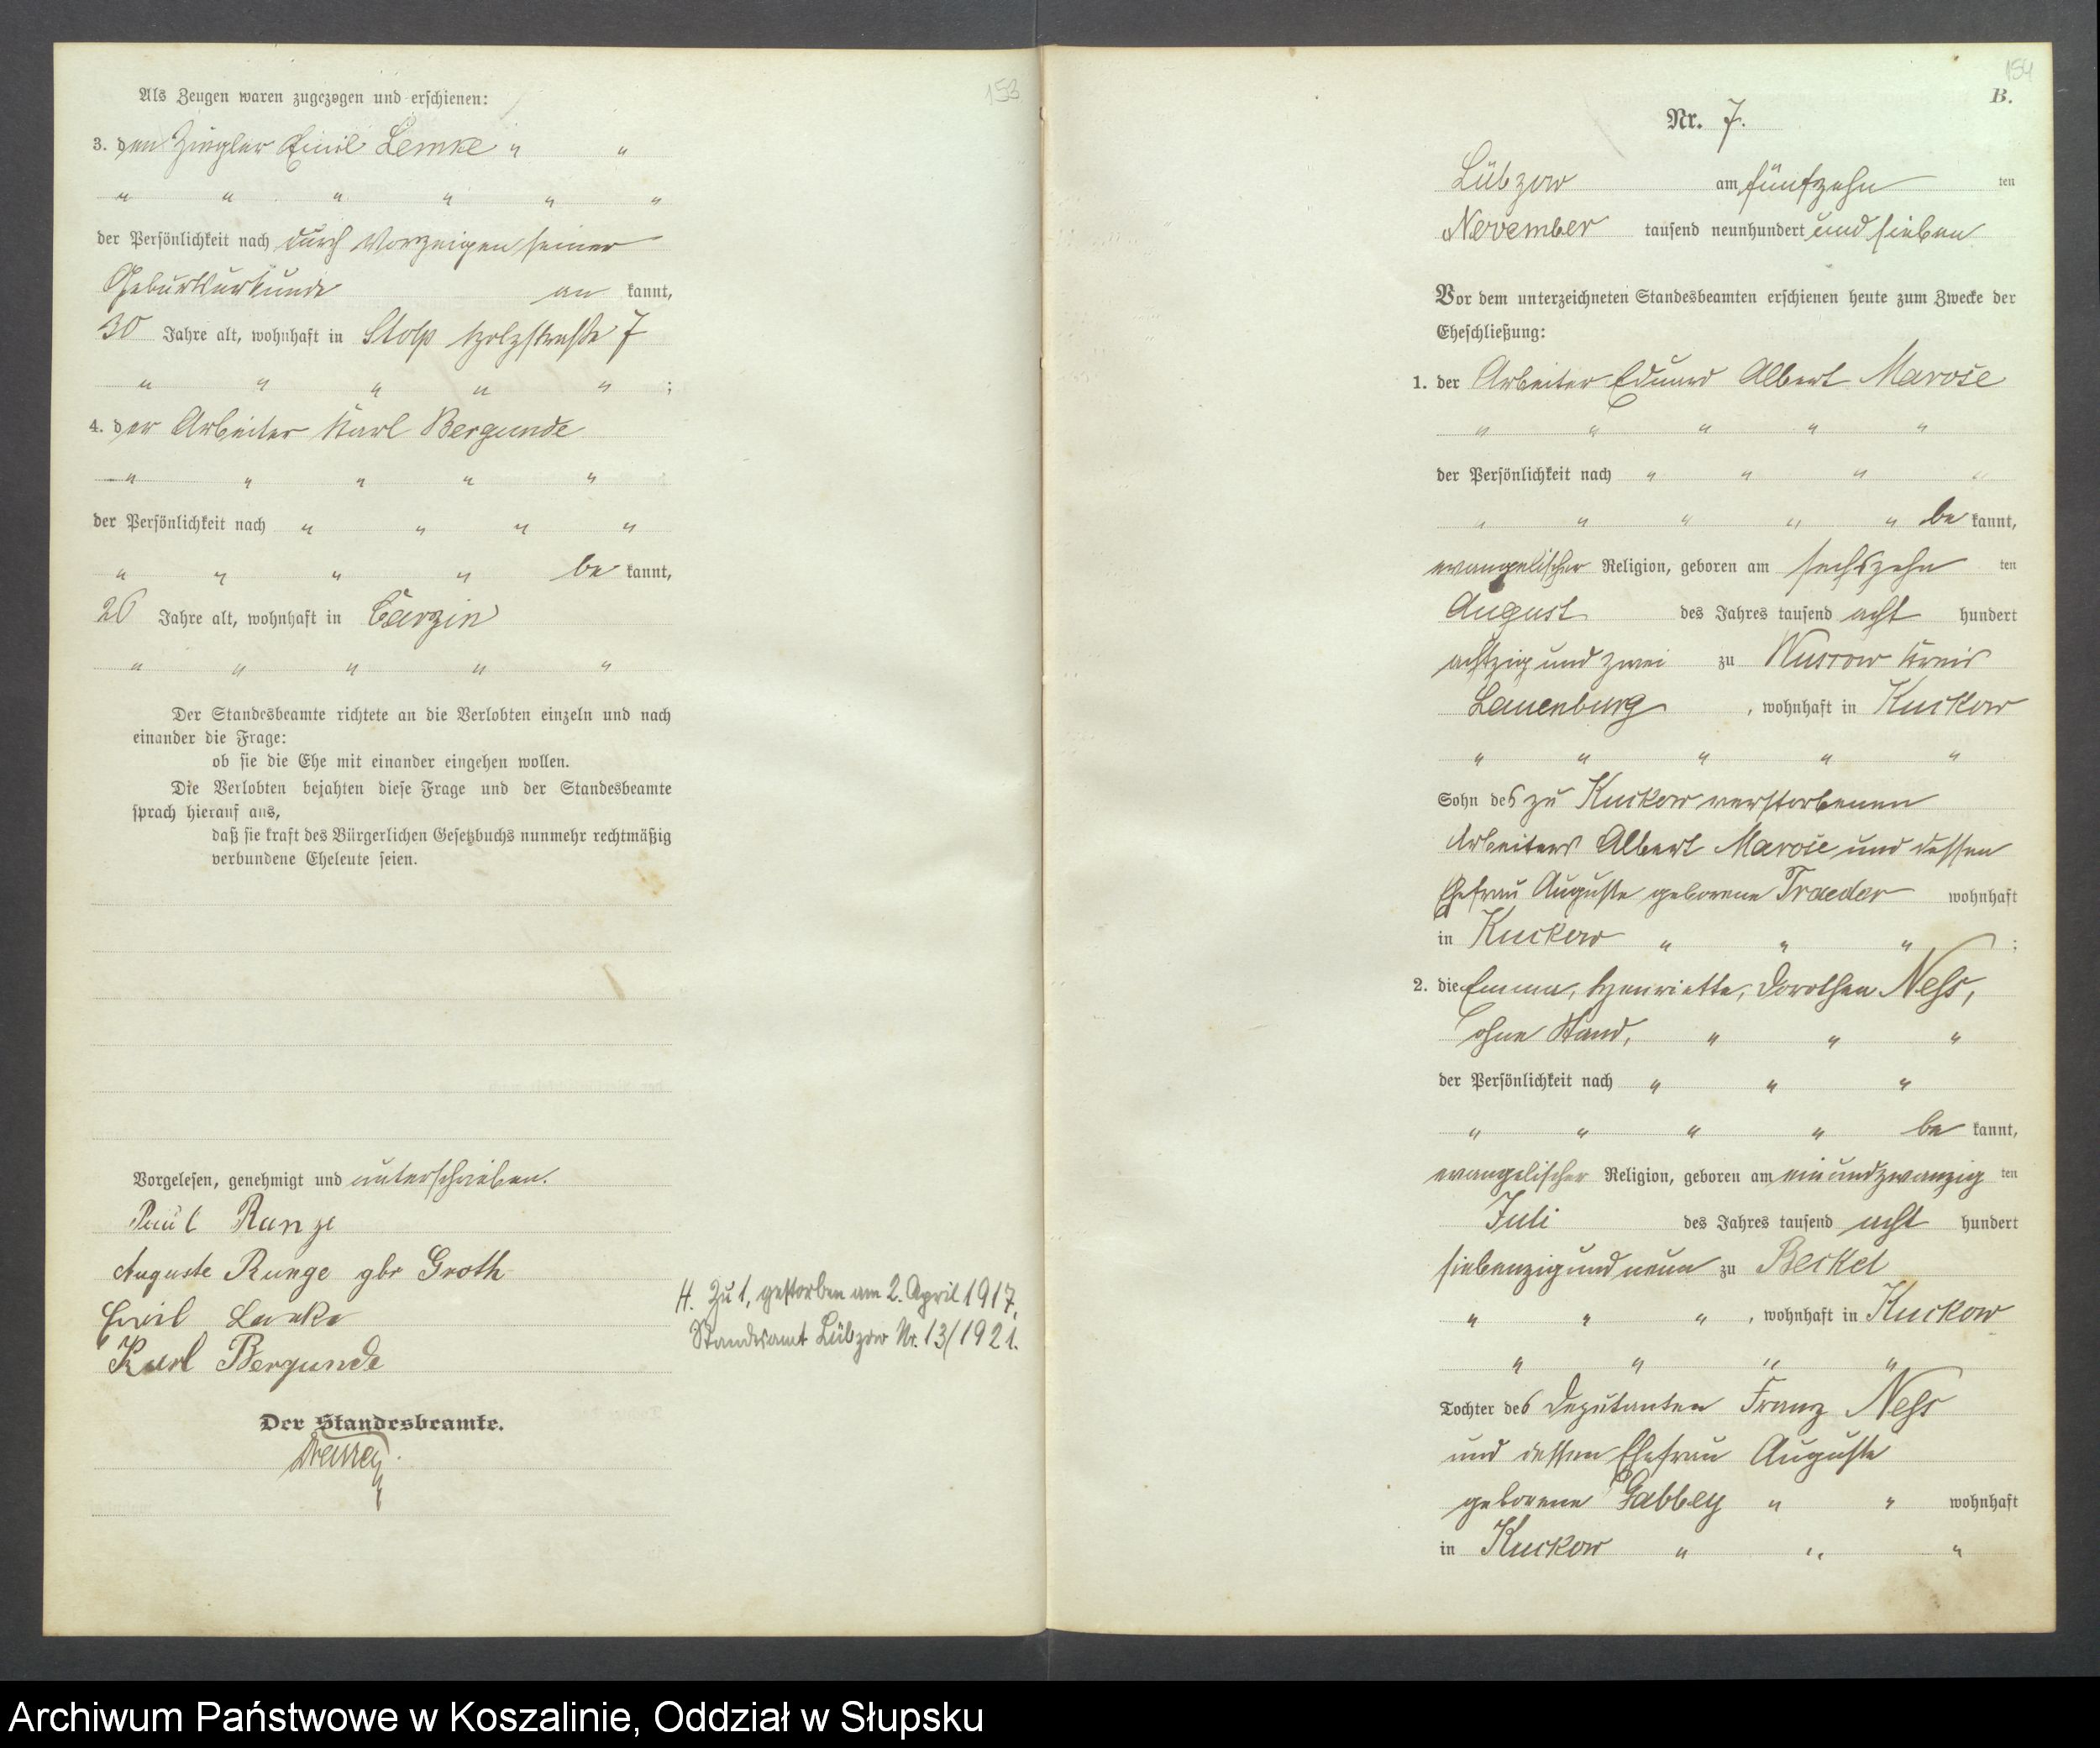 153
Als Zeugen waren zugezogen und erschienen:
3. den Ziegler Emil Lemke " "
" " " " " "
der Persönlichkeit nach durch Vorzeigen seiner
Geburtsurkunde an kannt,
30 Jahre alt, wohnhaft in Stolp Holzstraße 7
" " " " " ;
4. der Arbeiter Karl Bergunde
" " " " "
der Persönlichkeit nach " " " "
" " " " be kannt,
26 Jahre alt, wohnhaft in Carzin
" " " " "
Der Standesbeamte richtete an die Verlobten einzeln und nach
einander die Frage:
ob sie die Ehe mit einander eingehen wollen.
Die Verlobten bejahten diese Frage und der Standesbeamte
sprach hierauf aus,
daß sie kraft des Bürgerlichen Gesetzbuchs nunmehr rechtmäßig
verbundene Eheleute seien.
Vorgelesen, genehmigt und unterschrieben.
Paul Runge
Auguste Runge gbr Groth
Emil Lemke
Karl Bergunde
H. Zu 1, gestorben am 2. April 1917,
Standesamt Lübzow Nr. 13/1921.
Der Standesbeamte.
154
B.
Nr. 7.
Lübzow am fünfzehn ten
November tausend neunhundert und sieben
Vor dem unterzeichneten Standesbeamten erschienen heute zum Zwecke der
Eheschließung:
1. der Arbeiter Eduard Albert Marose
" " " " "
der Persönlichkeit nach " " " "
" " " " " be kannt,
evangelischer Religion, geboren am sechszehn ten
August des Jahres tausend acht hundert
achtzig und zwei zu Wussow Kreis
Lauenburg , wohnhaft in Kuckow
" " " " "
Sohn des zu Kuckow verstorbenen
Arbeiters Albert Marose und dessen
Ehefrau Auguste geborene Traeder wohnhaft
in Kuckow " " " ;
2. die Emma, Henriette, Dorothea Ness,
ohne Stand, " " "
der Persönlichkeit nach " " "
" " " " be kannt,
evangelischer Religion, geboren am einundzwanzig ten
Juli des Jahres tausend acht hundert
siebenzig und neun zu Beckel
" " " , wohnhaft in Kuckow
" " " "
Tochter des Deputanten Franz Ness
und dessen Ehefrau Auguste
geborene Gabbey " " wohnhaft
in Kuckow " " "
Archiwum Państwowe w Koszalinie, Oddział w Słupsku